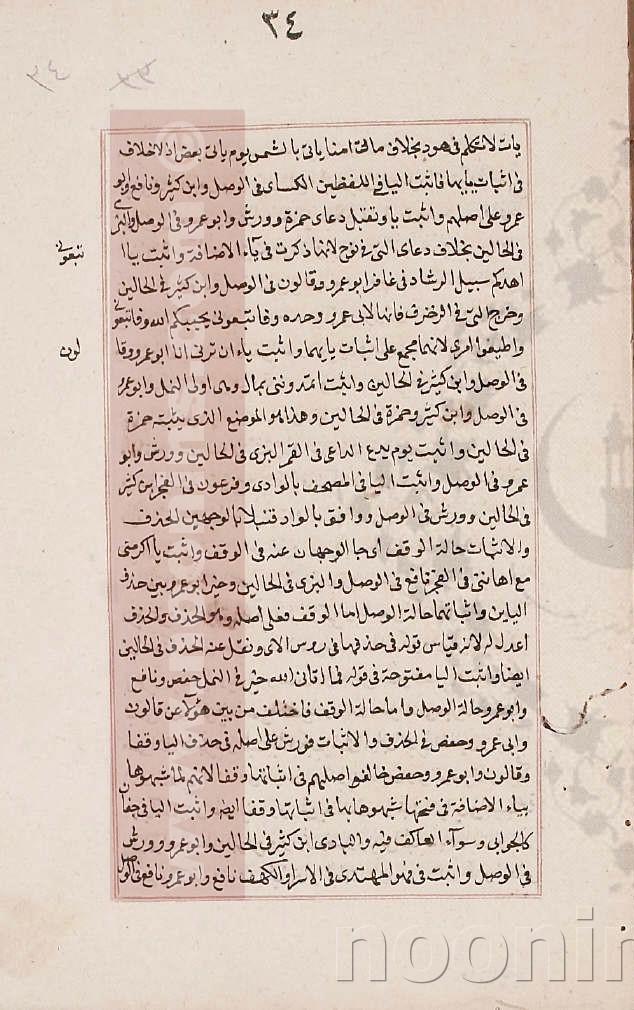 ٣٤
٣٤ ٣٣
يات لا تكلم فى هود بخلاف ما لحق امنا ياتى بالشمس يوم ياتى بعض اذ لا خلاف
فى اثبات يايهما فاثبت اليا فى اللفظين الكساى فى الوصل وابن كثير ونافع وابو
عمرو على اصلهم واثبت يا وتقبل دعاى حمزة وورش وابو عمرو فى الوصل والبزى
فى الحالين بخلاف دعاى التى فى نوح لانها ذكرت فى ياء الاضافة واثبت يا
تبعونى
اهدكم سبيل الرشاد فى غافر ابو عمرو وقالون فى الوصل وابن كثير فى الحالين
وخرج التى فى الزخرف فانها لابى عمرو وحده وفاتبعونى يحببكم الله وفاتبعونى
واطيعوا امرى لانهما مجمع على اثبات يايهما واثبت ياء ان ترنى انا ابو عمرو وقا
لون
فى الوصل وابن كثير فى الحالين واثبت اتمدوننى بمال وهى اولى النمل وابو عمرو
فى الوصل وابن كثير وحمزة فى الحالين وهذا هو الموضع الذى يثبته حمزة
فى الحالين واثبت يوم يدع الداعى فى القمر البزى فى الحالين وورش وابو
عمرو فى الوصل واثبت اليا فى المصحف بالوادى وفرعون فى الفجر ابن كثير
فى الحالين وورش فى الوصل ووافق بالواد قنبلا بالوجهين الحذف
والاثبات حالة الوقف اى جا الوجهان عنه فى الوقف واثبت يا اكرمنى
مع اهاننى فى الفجر نافع فى الوصل والبزى فى الحالين وخير ابو عمرو بين حذف
اليايين واثباتهما حالة الوصل اما الوقف فعلى اصله وهو الحذف والحذف
اعدل له لانه قياس قوله فى حذفهما فى روس الاى ونقل عنه الحذف فى الحالين
ايضا واثبت اليا مفتوحة فى قوله فما اتانى الله خير فى النمل حفص ونافع
وابو عمرو حالة الوصل واما حالة الوقف فاختلف من بين هؤلاء عن قالون
وابى عمرو وحفص فى الحذف والاثبات فورش على اصله فى حذف اليا وقفا
وقالون وابو عمرو وحفص خالفوا اصلهم فى اثباتها وقفا لانهم لما شبهوها
بياء الاضافة فى فتحها شبهوها بها فى اثباتها وقفا ايضا واثبت اليا فى جفان
كالجوابى وسوآء العاكف فيه والبادى ابن كثير فى الحالين وابو عمرو وورش
فى الوصل واثبت فى فهو المهتدى فى الاسرا والكهف نافع وابو عمرو ونافع فى الوصل
noonin